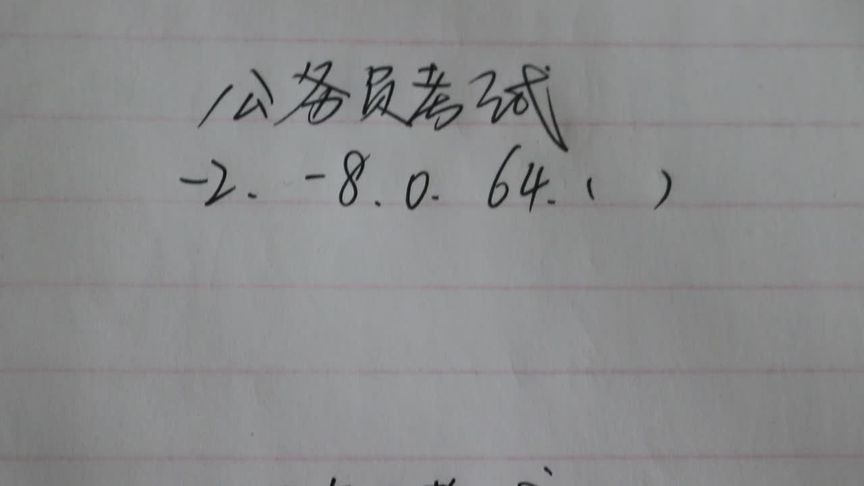 公务员考试
-2. -8. 0. 64. ( )